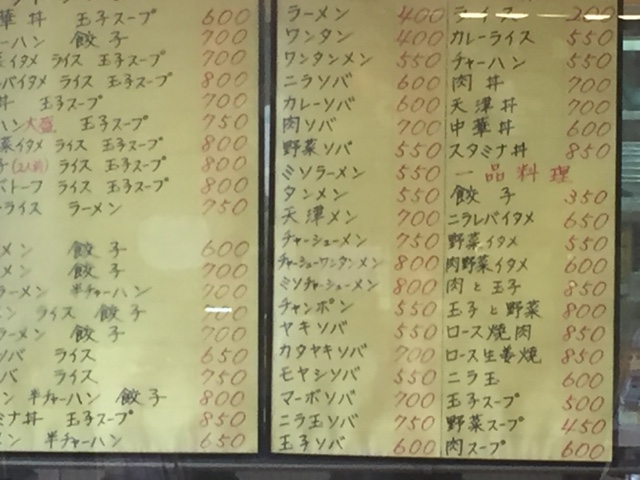 中華丼 玉子スープ 600
ーハン 餃子 700
イタメ ライス 玉子スープ 700
バイタメ ライス 玉子スープ 800
丼 玉子スープ 700
ハン大盛 玉子スープ 750
菜イタメ ライス 玉子スープ 800
子(2人前) ライス 玉子スープ 800
トーフ ライス 玉子スープ 800
ーライス ラーメン 750
メン 餃子 600
メン 餃子 700
ラーメン 半チャーハン 700
ン ライス 餃子 700
ラーメン 餃子 700
ソバ ライス 650
バ ライス 750
ン 半チャーハン 餃子 800
ミナ丼 玉子スープ 850
ン 半チャーハン 650
ラーメン 400
ワンタン 400
ワンタンメン 550
ニラソバ 600
カレーソバ 600
肉ソバ 700
野菜ソバ 550
ミソラーメン 550
タンメン 550
天津メン 700
チャーシューメン 750
チャーシューワンタンメン 800
ミソチャーシューメン 800
チャンポン 550
ヤキソバ 550
カタヤキソバ 700
モヤシソバ 550
マーボソバ 700
ニラ玉ソバ 750
玉子ソバ 600
ライス 200
カレーライス 550
チャーハン 550
肉丼 700
天津丼 700
中華丼 600
スタミナ丼 850
一品料理
餃子 350
ニラレバイタメ 650
野菜イタメ 550
肉野菜イタメ 600
肉と玉子 850
玉子と野菜 800
ロース焼肉 850
ロース生姜焼 850
ニラ玉 600
玉子スープ 500
野菜スープ 450
肉スープ 600